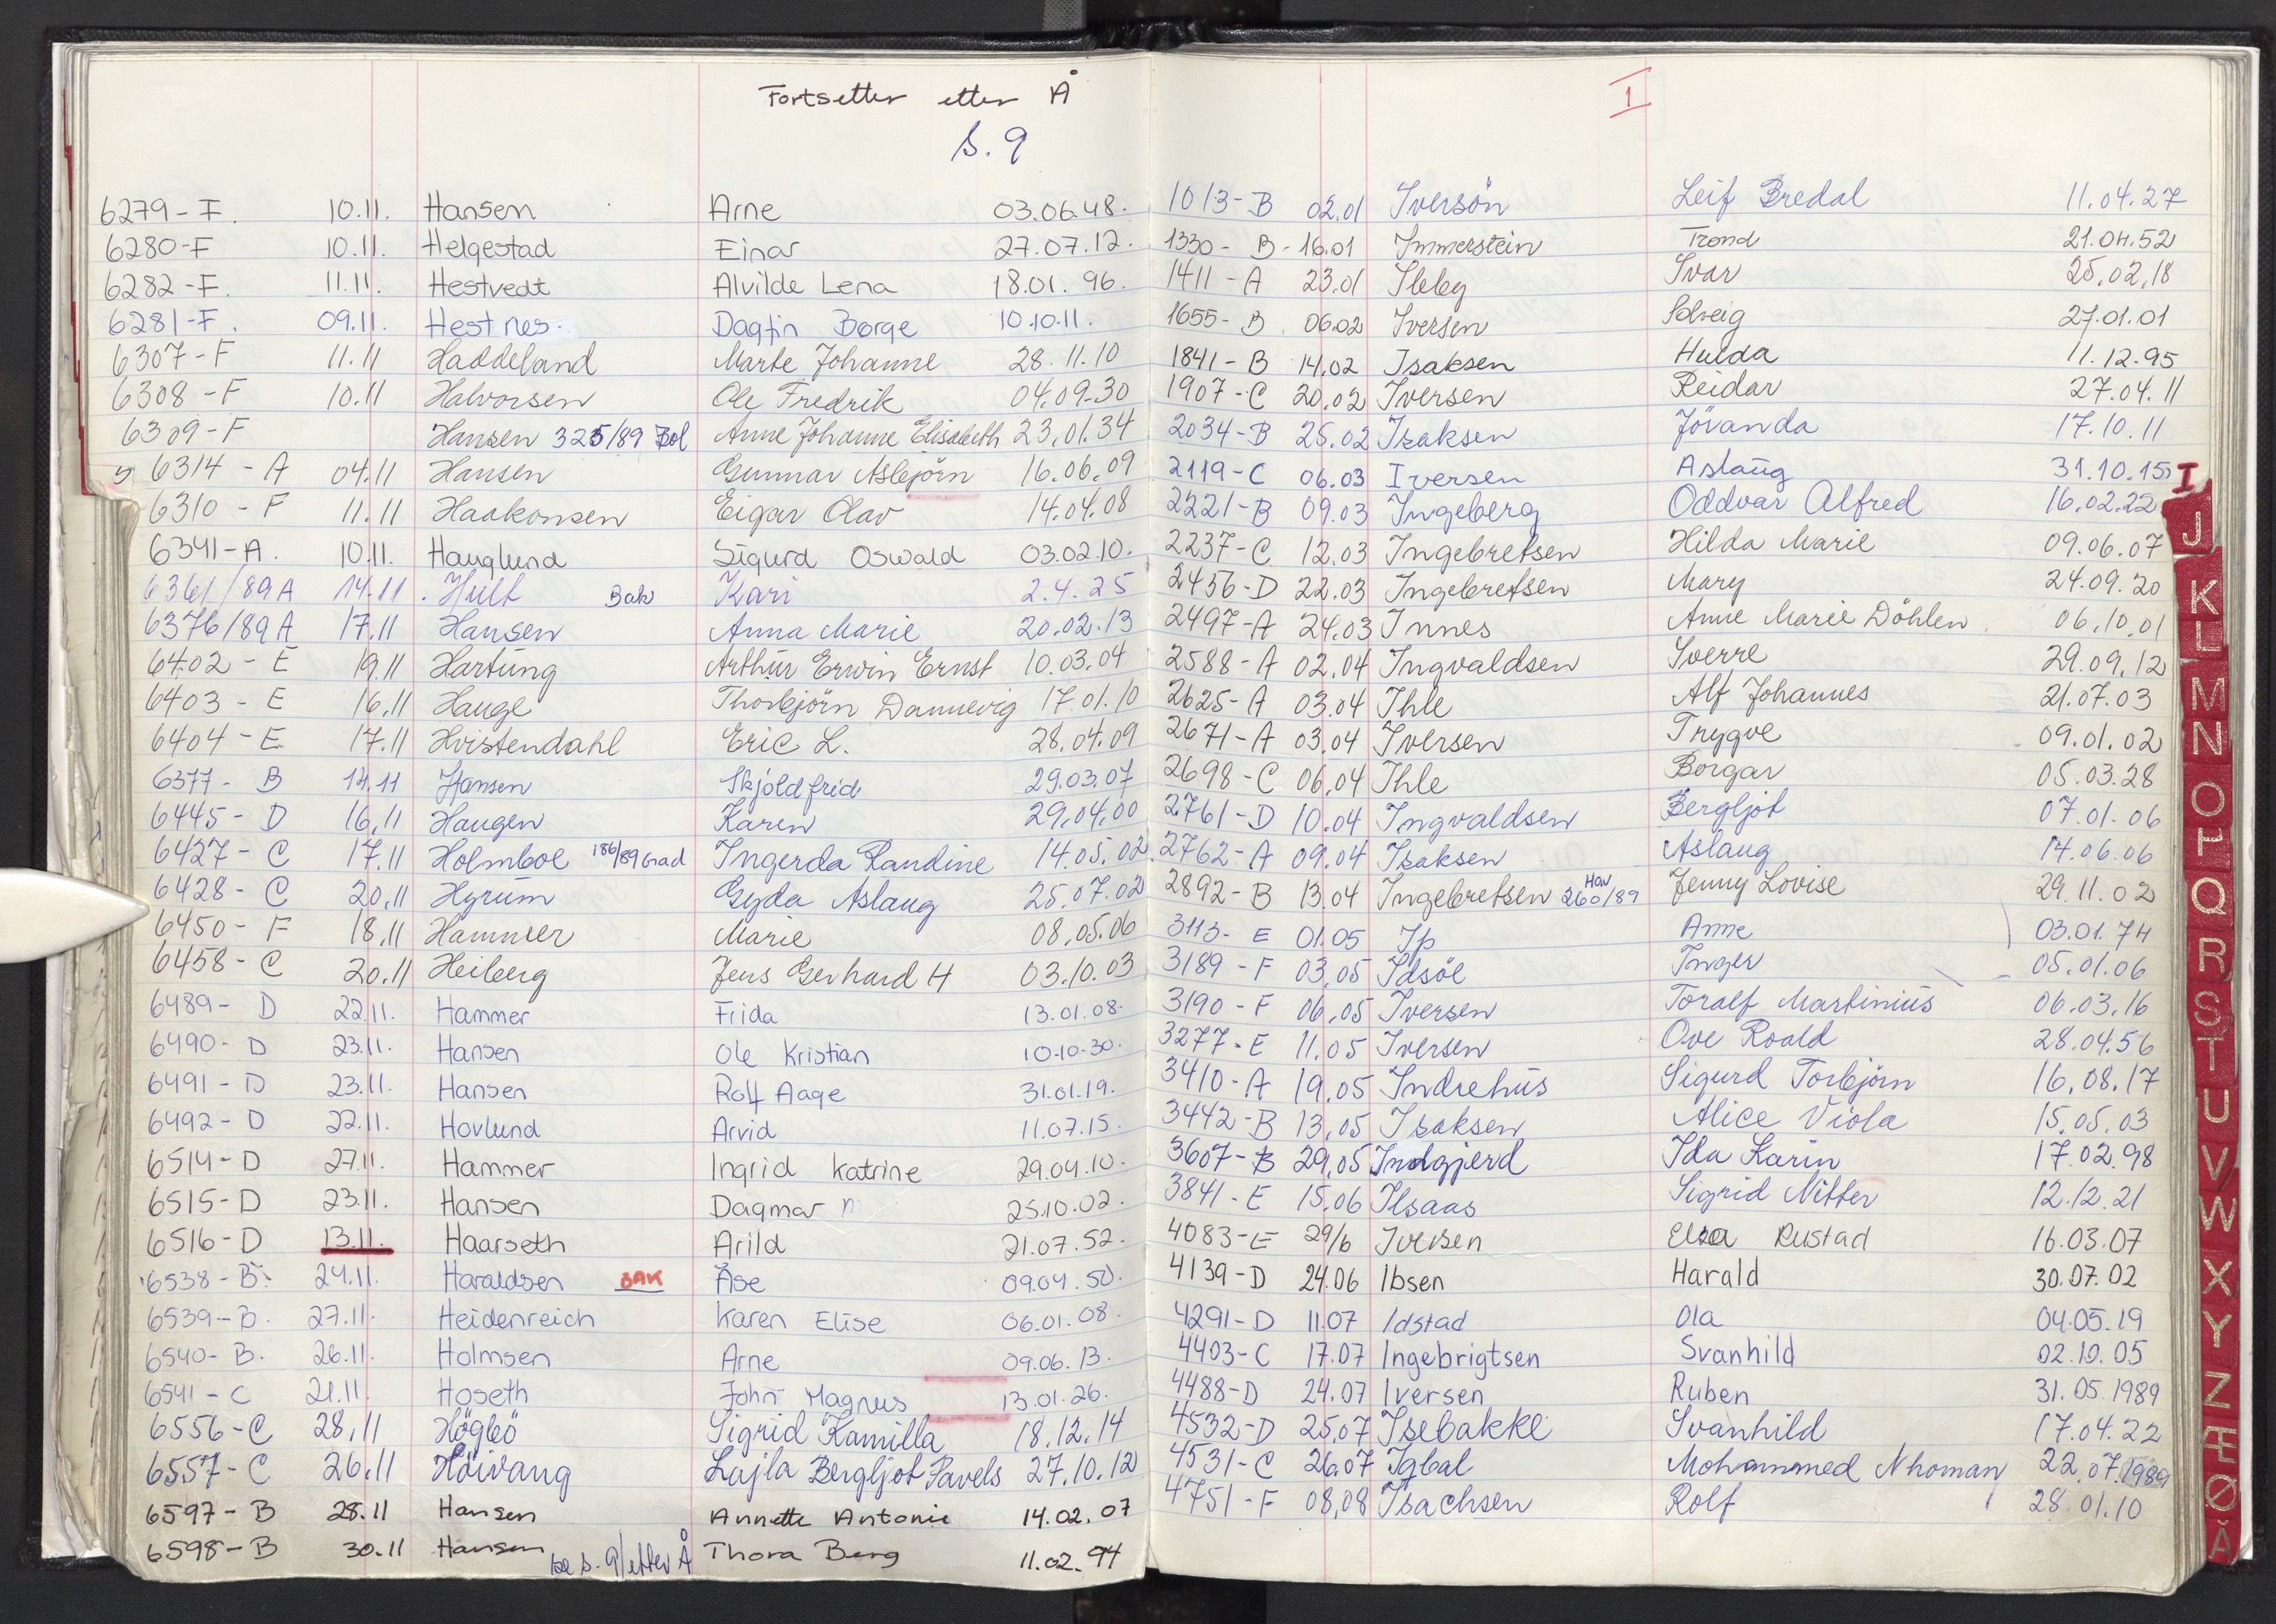 Fortsetter etter Å
S. 9
6279-F. 10.11. Hansen Arne 03.06.48.
6280-F 10.11. Helgestad Einar 27.07.12.
6282-F. 11.11. Hestvedt Alvilde Lena 18.01.96.
6281-F. 09.11. Hestnes. Dagfin Borge 10.10.11.
6307-F 11.11 Haddeland Marte Johanne 28.11.10
6308-F 10.11 Halvorsen Ole Fredrik 04.09.30
6309-F Hansen 325/89 Bol Anne Johanne Elisabeth 23.01.34
6314-A 04.11 Hansen Gunnar Asbjörn 16.06.09
6310-F 11.11 Haakonsen Eigar Olav 14.04.08
6341-A. 10.11. Hauglund Sigurd Oswald 03.02.10.
6361/89A 14.11. Hult Bak Kari 2.4.25
6376/89A 17.11 Hansen Anna Marie 20.02.13
6402-E 19.11 Hartung Arthur Erwin Ernst 10.03.04
6403-E 16.11 Hauge Thorbjörn Dannevig 17.01.10
6404-E 17.11 Hvistendahl Eric L. 28.04.09
6377-B 14.11 Hansen Skjoldfrid 29.03.07
6445-D 16.11 Haugen Karen 29.04.00
6427-C 17.11 Holmboe 186/89 Grad Ingerda Randine 14.05.02
6428-C 20.11 Hyrum Gyda Aslaug 25.07.02
6450-F 18.11 Hammer Marie 08.05.06
6458-C 20.11 Heiberg Jens Gerhard H 03.10.03
6489-D 22.11. Hammer Frida 13.01.08.
6490-D 23.11. Hansen Ole Kristian 10.10.30.
6491-D 23.11. Hansen Rolf Aage 31.01.19.
6492-D 22.11. Hovlund Arvid 11.07.15.
6514-D 27.11. Hammer Ingrid Katrine 29.04.10.
6515-D 23.11. Hansen Dagmar 25.10.02.
6516-D 13.11. Haarseth Arild 21.07.52.
6538-B. 24.11. Haraldsen BAK Åse 09.04.50.
6539-B. 27.11. Heidenreich Karen Elise 06.01.08.
6540-B. 26.11. Holmsen Arne 09.06.13.
6541-C 21.11. Hoseth John Magnus 13.01.26.
6556-C 28.11 Högbö Sigrid Kamilla 18.12.14
6557-C 26.11 Höivang Lajla Bergljot Pavels 27.10.12
6597-B 28.11 Hansen Annette Antonie 14.02.07
6598-B 30.11 Hansen Thora Berg 11.02.94
se s. 9/etter Å
I
1013-B 02.01 Iversön Leif Bredal 11.04.27
1330-B-16.01 Immerstein Trond 21.04.52
1411-A 23.01 Ibley Ivar 25.02.18
1655-B 06.02 Iversen Solveig 27.01.01
1841-B 14.02 Isaksen Hulda 11.12.95
1907-C 20.02 Iversen Reidar 27.04.11
2034-B 25.02 Isaksen Jövanda 17.10.11
2119-C 06.03 Iversen Aslaug 31.10.15
2221-B 09.03 Ingeberg Oddvar Alfred 16.02.22
2237-C 12.03 Ingebretsen Hilda Marie 09.06.07
2456-D 22.03 Ingebretsen Mary 24.09.20
2497-A 24.03 Innes Anne Marie Döhlen 06.10.01
2588-A 02.04 Ingvaldsen Sverre 29.09.12
2625-A 03.04 Ihle Alf Johannes 21.07.03
2671-A 03.04 Iversen Trygve 09.01.02
2698-C 06.04 Ihle Borgar 05.03.28
2761-D 10.04 Ingvaldsen Bergljot 07.01.06
2762-A 09.04 Isaksen Aslaug 14.06.06
2892-B 13.04 Ingebretsen Hav 260/89 Jenny Lovise 29.11.02
3113-E 01.05 Ip Anne 03.01.74
3189-F 03.05 Idsöe Inger 05.01.06
3190-F 06.05 Iversen Toralf Martinius 06.03.16
3277-E 11.05 Iversen Ove Roald 28.04.56
3410-A 19.05 Indrehus Sigurd Torbjörn 16.08.17
3442-B 13.05 Isaksen Alice Viola 15.05.03
3607-B 29.05 Indgjerd Ida Karin 17.02.98
3841-E 15.06 Ilsaas Sigrid Nitter 12.12.21
4083-E 29/6 Iversen Elsa Rustad 16.03.07
4139-D 24.06 Ibsen Harald 30.07.02
4291-D 11.07 Idstad Ola 04.05.19
4403-C 17.07 Ingebrigtsen Svanhild 02.10.05
4488-D 24.07 Iversen Ruben 31.05.1989
4532-D 25.07 Isebakke Svanhild 17.04.22
4531-C 26.07 Iqbal Mohammed Nhoman 22.07.1989
4751-F 08.08 Isachsen Rolf 28.01.10
I
J
K
L
M
N
O
P
Q
R
S
T
U
V
W
X
Y
Z
Æ
Ø
Å